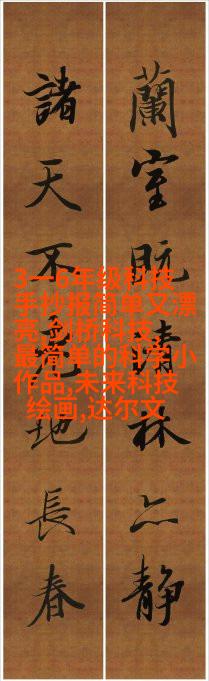 蘭室既清林亦静
諸天不老地長春
3一6年级科技
手抄报简单又漂
亮,剑桥科技,
最简单的科学小
作品,未来科技
绘画,达尔文